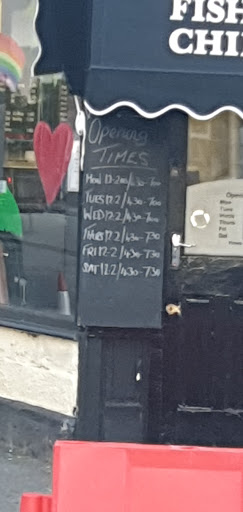 FISH
CHI
Opening
TIMES
MON 12-2PM/4.30-7.00
TUES 12.2/4.30-7.00
WED 12.2/4.30-7.00
THURS 12.2/4.30-7.30
FRI 12.2/4.30-7.30
SAT 12.2/4.30-7.30
Open
Mon
Tues
Weds
Thurs
Fri
Sat